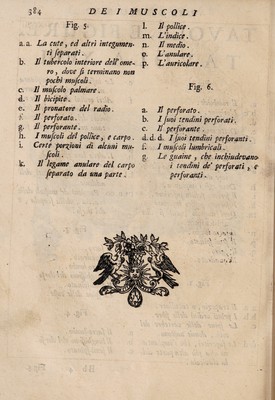 384 DE I MUSCOLI
Fig. 5.
a.a. La cute, ed altri integumen-
ti separati.
b. Il tubercolo interiore dell'ome-
ro, dove si terminano non
pochi muscoli.
c. Il muscolo palmare.
d. Il bicipite.
e. Il pronatore del radio.
f. Il perforato.
g. Il perforante.
h. I muscoli del pollice, e carpo.
i. Certe porzioni di alcuni mu-
scoli.
k. Il legame anulare del carpo
separato da una parte.
l. Il pollice.
m. L'indice.
n. Il medio.
o. L'anulare.
p. L'auricolare.
Fig. 6.
a. Il perforato.
b. I suoi tendini perforati.
c. Il perforante.
d.d.d. I suoi tendini perforanti.
f. I muscoli lumbricali.
g. Le guaine, che inchiudevano
i tendini de' perforati, e
perforanti.